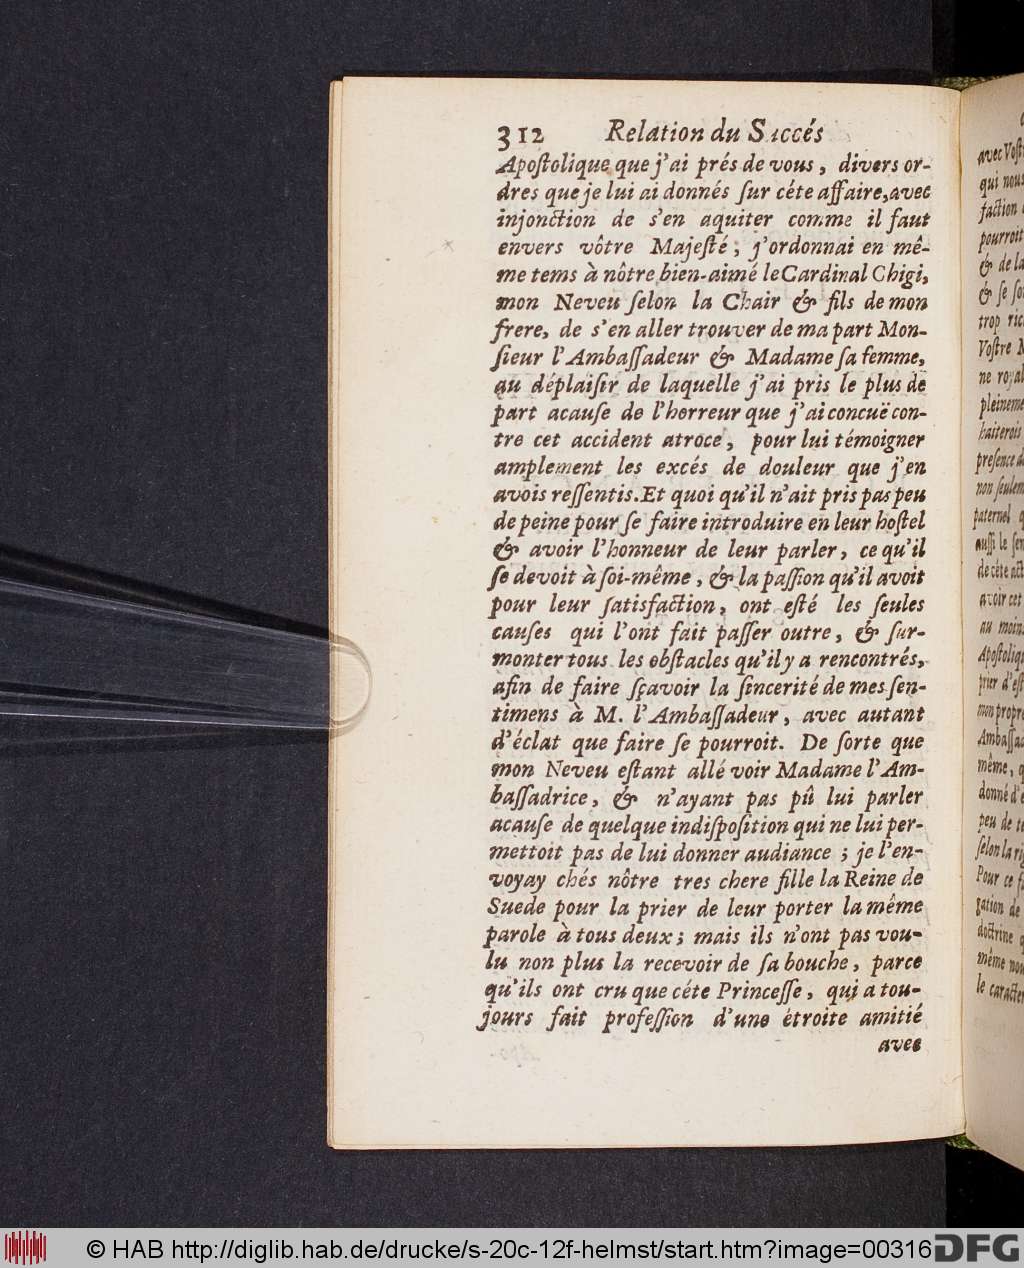 312 Relation du Succés
Apoſtolique que j'ai prés de vous, divers or-
dres que je lui ai donnés ſur céte affaire, avec
injonction de s'en aquiter comme il faut
envers vôtre Majeſté, j'ordonnai en mê-
me tems à nôtre bien-aimé le Cardinal Chigi,
mon Neveu ſelon la Chair & fils de mon
frere, de s'en aller trouver de ma part Mon-
ſieur l'Ambaſſadeur & Madame ſa femme,
au déplaiſir de laquelle j'ai pris le plus de
part acauſe de l'horreur que j'ai concuë con-
tre cet accident atroce, pour lui témoigner
amplement les excés de douleur que j'en
avois reſſentis. Et quoi qu'il n'ait pris pas peu
de peine pour ſe faire introduire en leur hoſtel
& avoir l'honneur de leur parler, ce qu'il
ſe devoit à ſoi-même, & la paſſion qu'il avoit
pour leur ſatisfaction, ont eſté les ſeules
cauſes qui l'ont fait paſſer outre, & ſur-
monter tous les obſtacles qu'il y a rencontrés,
afin de faire ſçavoir la ſincerité de mes ſen-
timens à M. l'Ambaſſadeur, avec autant
d'éclat que faire ſe pourroit. De ſorte que
mon Neveu eſtant allé voir Madame l'Am-
baſſadrice, & n'ayant pas pû lui parler
acauſe de quelque indiſpoſition qui ne lui per-
mettoit pas de lui donner audiance ; je l'en-
voyay chés nôtre tres chere fille la Reine de
Suede pour la prier de leur porter la même
parole à tous deux ; mais ils n'ont pas vou-
lu non plus la recevoir de ſa bouche, parce
qu'ils ont cru que céte Princeſſe, qui a tou-
jours fait profeſſion d'une étroite amitié
avec
avec Voſt
qui nous
faction
pourroit
& de la
& ſe ſo
trop ric
Voſtre M
ne royal
pleineme
haiterois
preſence d
non ſeulem
paternel
auſſi le ſen
de céte act
avoir cet
au moins
Apoſtoliq
prier d'eſt
mon propre
Ambaſſa
même,
donné d'e
peu de te
ſelon la ri
Pour ce f
gation de
doctrine
même nou
le caracter
© HAB http://diglib.hab.de/drucke/s-20c-12f-helmst/start.htm?image=00316
DFG